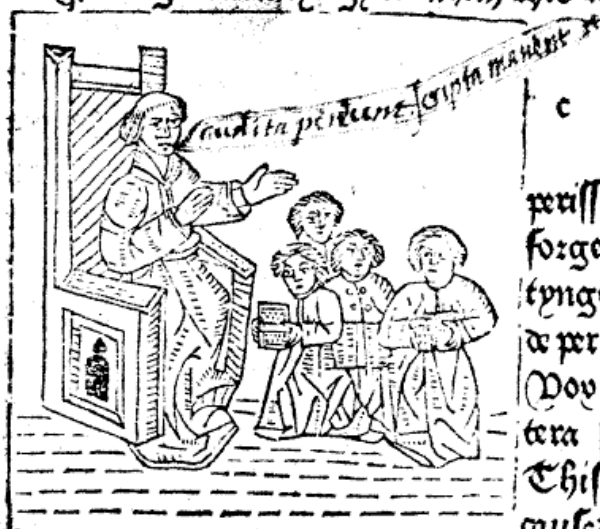 audita pereunt scripta manent
c
periss
forge
tynge
de per
Voy
tera
This